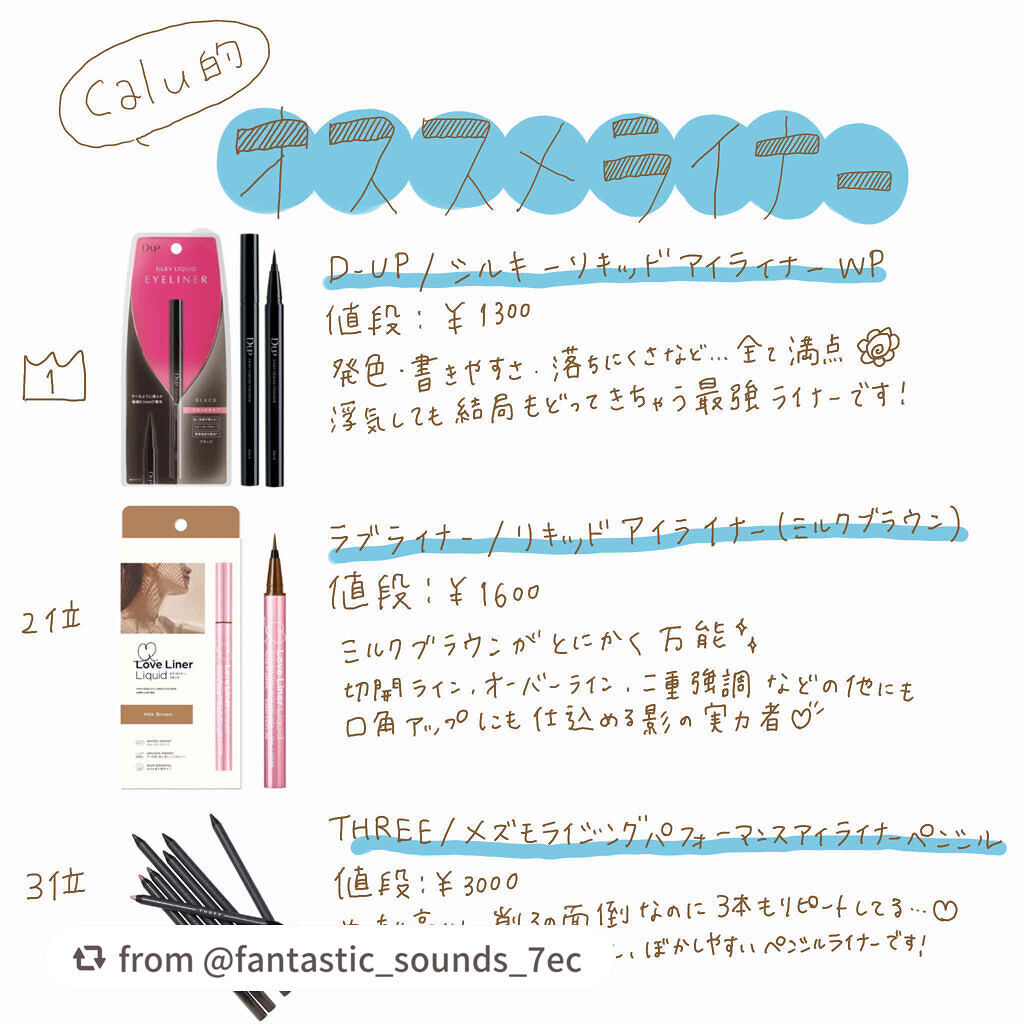 Calu的
オススメライナー
D-UP/シルキーリキッドアイライナーWP
値段:¥1300
発色・書きやすさ・落ちにくさなど…全て満点
浮気しても結局もどってきちゃう最強ライナーです!
1
D-UP
SILKY LIQUID
EYELINER
BLACK
ラブライナー/リキッドアイライナー(ミルクブラウン)
値段:¥1600
ミルクブラウンがとにかく万能
切開ライン、オーバーライン、二重強調などの他にも
口角アップにも仕込める影の実力者
2位
Love Liner
Liquid
Milk Brown
Love Liner Liquid
THREE/メズモライジングパフォーマンスアイライナーペンシル
値段:¥3000
削るの面倒なのに3本もリピートしてる…
ぼかしやすいペンシルライナーです!
3位
THREE
from @fantastic_sounds_7ec